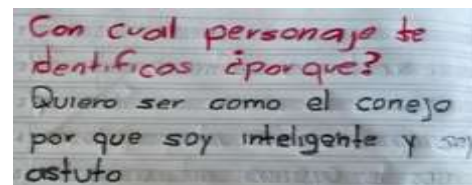 Con cual personaje te
identificas ¿por que?
Quiero ser como el conejo
por que soy inteligente y soy
astuto